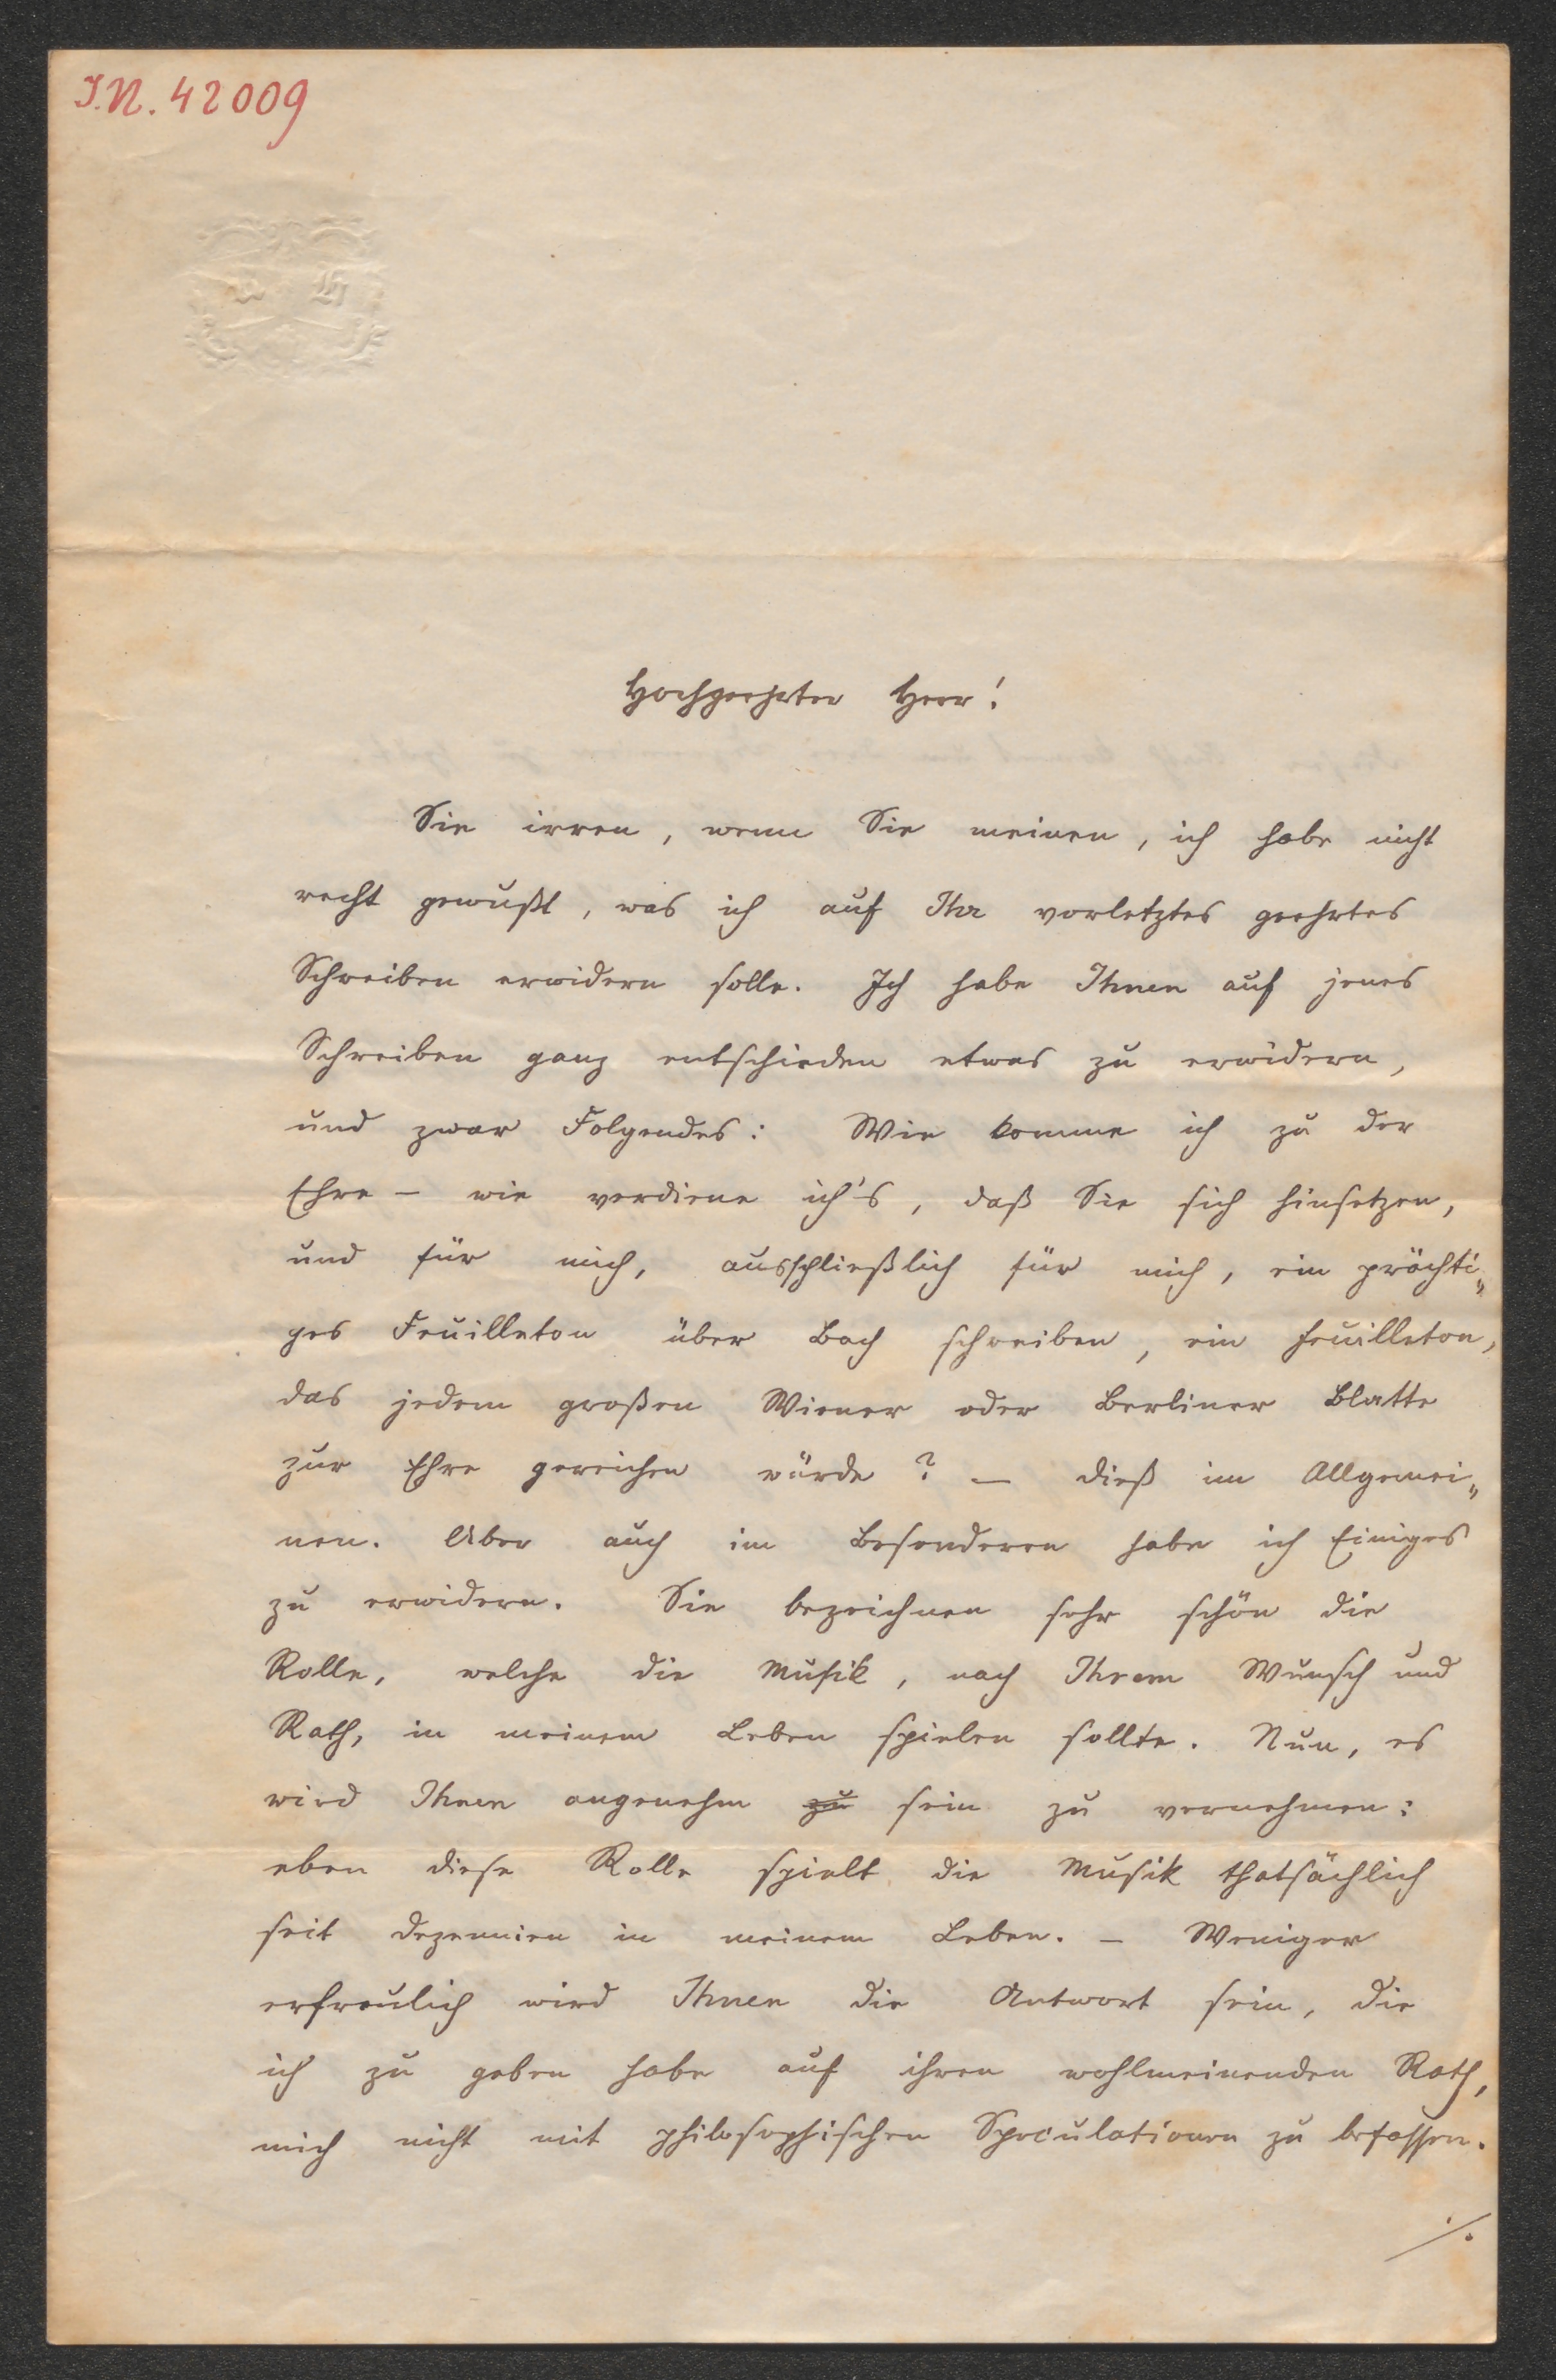 I.N. 42009
Hochgeehrter Herr!
Sie irren, wenn Sie meinen, ich habe nicht
recht gewußt, was ich auf Ihr vorletztes geehrtes
Schreiben erwidern solle. Ich habe Ihnen auf jenes
Schreiben ganz entschieden etwas zu erwidern,
und zwar Folgendes: Wie komme ich zu der
Ehre – wie verdiene ich's, daß Sie sich hinsetzen,
und für mich, ausschließlich für mich, ein prächti„
ges Feuilleton über Bach schreiben, ein Feuilleton,
das jedem großen Wiener oder Berliner Blatte
zur Ehre gereichen würde? – Dieß im Allgemei„
nen. Aber auch im Besonderen habe ich Einiges
zu erwidern. Sie bezeichnen sehr schön die
Rolle, welche die Musik, nach Ihrem Wunsch und
Rath, in meinem Leben spielen sollte. Nun, es
wird Ihnen angenehm zu sein zu vernehmen:
eben diese Rolle spielt die Musik thatsächlich
seit Dezennien in meinem Leben. – Weniger
erfreulich wird Ihnen die Antwort sein, die
ich zu geben habe auf ihren wohlmeinenden Rath,
mich nicht mit philosophischen Speculationen zu befassen.
./.